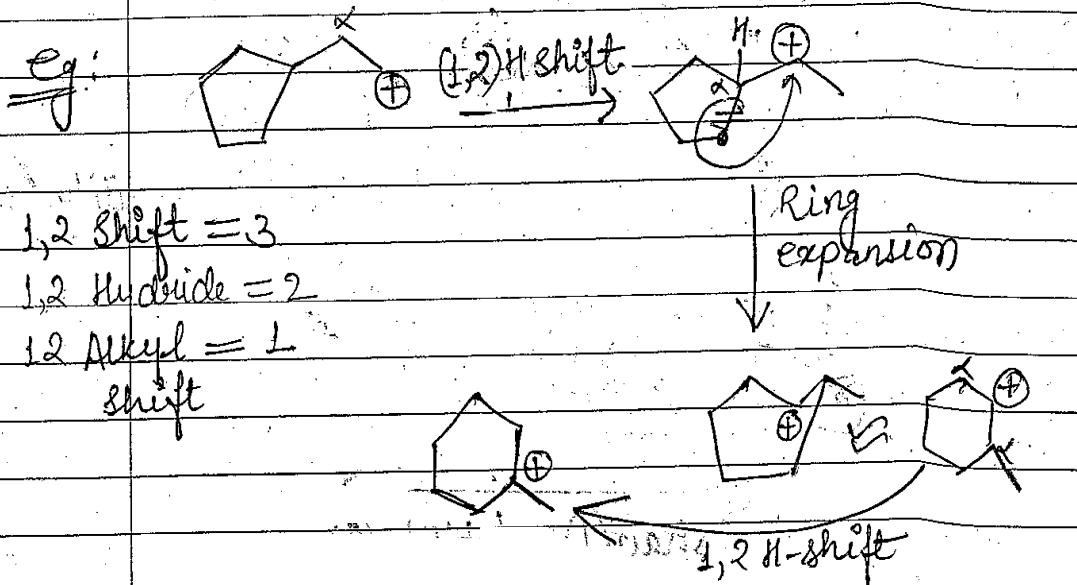 Eg:
α
⊕
(1,2) H shift
H
⊕
α
1,2 Shift = 3
1,2 Hydride = 2
12 Alkyl = 1
shift
Ring
expansion
⊕
⊕
α
⊕
α
1,2 H-shift